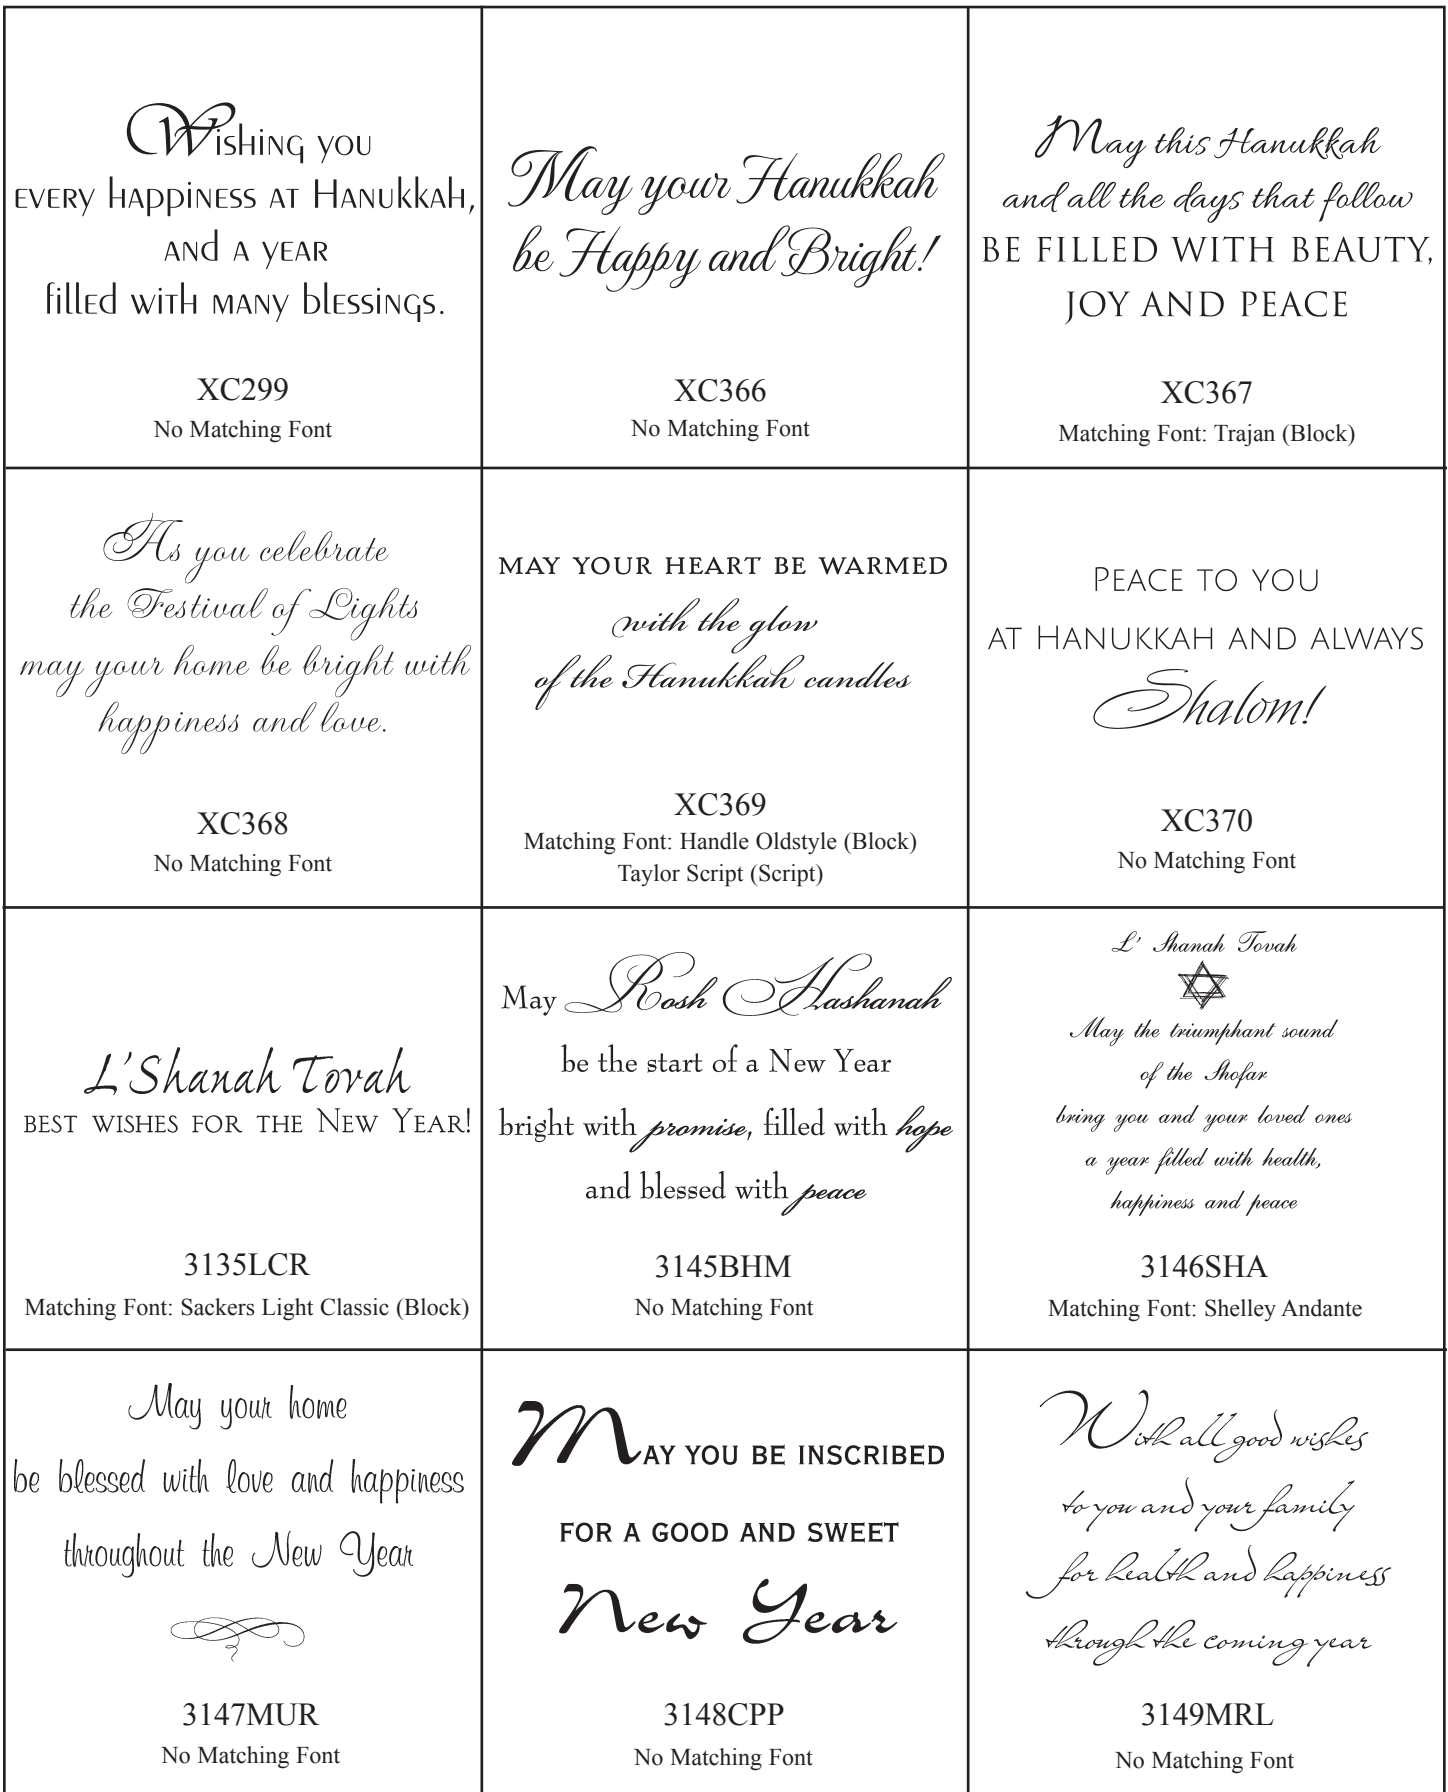 Wishing you
every happiness at Hanukkah,
and a year
filled with many blessings.
XC299
No Matching Font
May your Hanukkah
be Happy and Bright!
XC366
No Matching Font
May this Hanukkah
and all the days that follow
BE FILLED WITH BEAUTY,
JOY AND PEACE
XC367
Matching Font: Trajan (Block)
As you celebrate
the Festival of Lights
may your home be bright with
happiness and love.
XC368
No Matching Font
MAY YOUR HEART BE WARMED
with the glow
of the Hanukkah candles
XC369
Matching Font: Handle Oldstyle (Block)
Taylor Script (Script)
Peace to you
at Hanukkah and always
Shalom!
XC370
No Matching Font
L'Shanah Tovah
best wishes for the New Year!
3135LCR
Matching Font: Sackers Light Classic (Block)
May Rosh Hashanah
be the start of a New Year
bright with promise, filled with hope
and blessed with peace
3145BHM
No Matching Font
L' Shanah Tovah
May the triumphant sound
of the Shofar
bring you and your loved ones
a year filled with health,
happiness and peace
3146SHA
Matching Font: Shelley Andante
May your home
be blessed with love and happiness
throughout the New Year
3147MUR
No Matching Font
MAY YOU BE INSCRIBED
FOR A GOOD AND SWEET
New Year
3148CPP
No Matching Font
With all good wishes
to you and your family
for health and happiness
through the coming year
3149MRL
No Matching Font